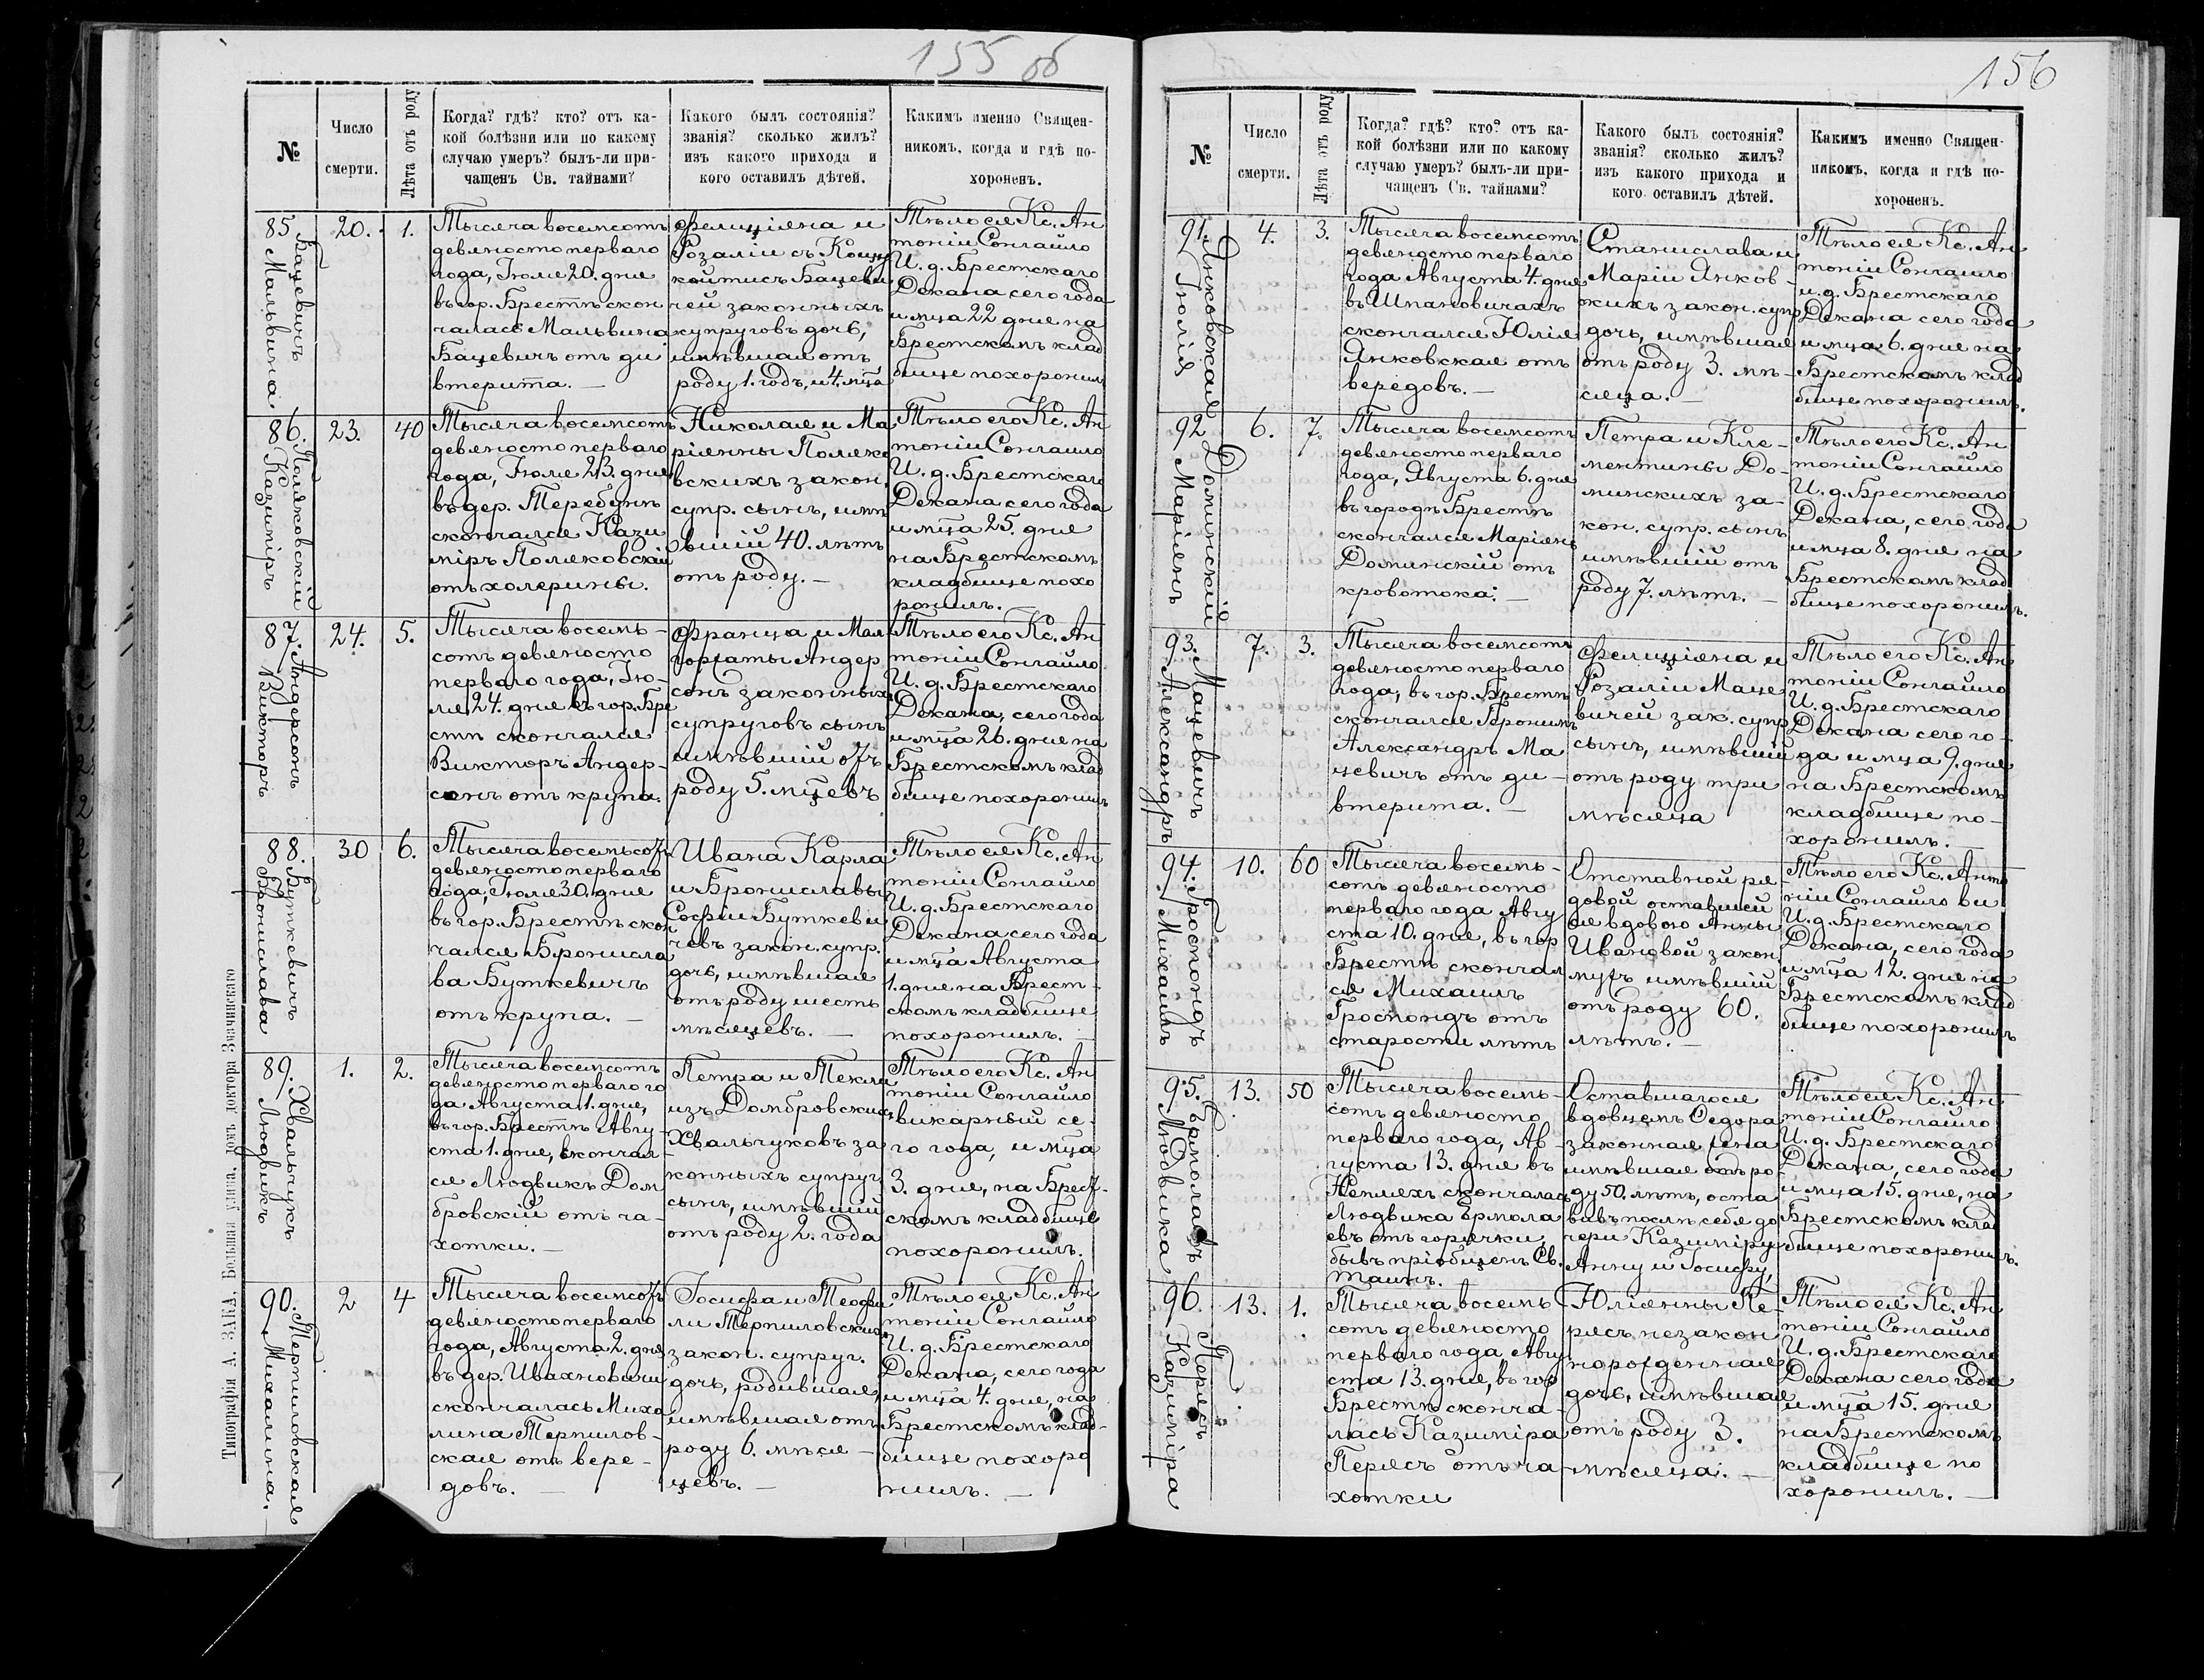 155 об
№
Число
смерти.
Лѣта отъ роду
Когда? гдѣ? кто? отъ ка-
кой болѣзни или по какому
случаю умеръ? былъ-ли при-
чащенъ Св. тайнами?
Какого былъ состоянія?
званія? сколько жилъ?
изъ какого прихода и
кого оставилъ дѣтей.
Какимъ именно Священ-
никомъ, когда и гдѣ по-
хороненъ.
85
Бацевичъ
Мальвина.
20.
1.
Тысяча восемсотъ
девяностоперваго
года, Іюля 20. дня
въ гор. Брестѣ скон
чалась Мальвина
Бацевичъ отъ ди
втерита. —
Фелиціяна и
Розаліи съ
Бацеви
чей законныхъ
супруговъ дочь,
имѣвшая отъ
роду 1. годъ, и 4. мца
Тѣло ея Кс. Ан
тоніи Сонгайло
И. д. Брестскаго
Декана сего года
и мца 22 дня на
Брестскомъ клад
бище похоронилъ
86.
Поляковскій
Казиміръ
23.
40
Тысяча восемсотъ
девяностоперваго
года, Іюля 23. дня
въ дер. Теребунѣ
скончался Кази
міръ Поляковскій
отъ холерины.
Николая и Ма
ріянны Поляко
вскихъ закон.
супр. сынъ, имѣ
вшій 40. лѣтъ
отъ роду. —
Тѣло его Кс. Ан
тоніи Сонгайло
И. д. Брестскаго
Декана сего года
и мца 25. дня
на Брестскомъ
кладбище похо
ронилъ. —
87.
Андерсонъ
Викторъ
24.
5.
Тысяча восемь-
сотъ девяносто
перваго года, Ію-
ля 24. дня въ гор. Бре
стѣ скончался
Викторъ Андер-
сонъ отъ крупа.
Франца и Мал
горжаты Андер
сонъ законныхъ
супруговъ сынъ
имѣвшій отъ
роду 5. мцевъ
Тѣло его Кс. Ан
тоніи Сонгайло
И. д. Брестскаго
Декана, сего года
и мца 26. дня на
Брестскомъ клад
бище похоронилъ
88.
Буткевичъ
Брониславa
30
6.
Тысяча восемьсотъ
девяностоперваго
года, Іюля 30. дня
въ гор. Брестѣ скон
чался Брониела
ва Буткевичъ
отъ крупа. —
Ивана Карла
и Брониславы
Софіи Буткеви
чевъ закон. супр.
дочь, имѣвшая
отъ роду шесть
мѣсяцевъ. —
Тѣло ея Кс. Ан
тоніи Сонгайло
И. д. Брестскаго
Декана сего года
и мца Августа
1. дня на Брест-
скомъ кладбище
похоронилъ. —
89.
Хвальчукъ
Людвикъ
1.
2.
Тысяча восемсотъ
девяностоперваго го
да Августа 1. дня,
въ гор. Брестѣ Авгу-
ста 1. дня, скончал
ся Людвикъ Дом
бровскій отъ ча-
хотки. —
Петра и Текли
изъ Домбровскихъ
Хвальчуковъ за
конныхъ супруг.
сынъ, имѣвшій
отъ роду 2. года
Тѣло его Кс. Ан
тоніи Сонгайло
викарный се-
го года, и мца
3. дня, на Брест-
скомъ кладбище
похоронилъ.
90.
Терпиловская
Михалина.
2
4
Тысяча восемсотъ
девяностоперваго
года, Августа 2. дня
въ дер. Ивахновичи
скончалась Миха
лина Терпилов-
ская отъ вере-
довъ. —
Іосифа и Теофи
ли Терпиловскихъ
закон. супруг.
дочь, родившая,
имѣвшая отъ
роду 6. мѣся-
цевъ. —
Тѣло ея Кс. Ан
тоніи Сонгайло
И. д. Брестскаго
Декана, сего года
и мца 4. дня, на
Брестскомъ клад-
бище похоро
нилъ. —
Типографія А. ЗАКА, Большая улица, домъ доктора Значинскаго
156
№
Число
смерти.
Лѣта отъ роду
Когда? гдѣ? кто? отъ ка-
кой болѣзни или по какому
случаю умеръ? былъ-ли при-
чащенъ Св. тайнами?
Какого былъ состоянія?
званія? сколько жилъ?
изъ какого прихода и
кого оставилъ дѣтей.
Какимъ именно Священ-
никомъ, когда и гдѣ по-
хороненъ.
91.
Янковская
Юлія
4.
3.
Тысяча восемсотъ
девяностоперваго
года Августа 4. дня
въ Шпановичахъ
скончался Юлія
Янковская отъ
вередовъ. —
Станислава и
Маріи Янков-
кихъ закон. супр
дочь, имѣвшая
отъ роду 3. мѣ-
сяца. —
Тѣло ея Кс. Ан
тоніи Сонгайло
и. д. Брестскаго
Декана сего года
и мца 6. дня на
Брестскомъ клад
бище похоронилъ.
92
Доминскій
Маріянъ
6.
7.
Тысяча восемсотъ
девяностоперваго
года, Августа 6. дня
въ городѣ Брестѣ
скончался Маріянъ
Доминскій отъ
кровотока. —
Петра и Кле-
ментины До-
минскихъ за-
кон. супр. сынъ
имѣвшій отъ
роду 7. лѣтъ. —
Тѣло его Кс. Ан
тоніи Сонгайло
И. д. Брестскаго
Декана, сего года
и мца 8. дня на
Брестскомъ клад
бище похоронилъ.
93.
Мацевичъ
Александръ
7.
3.
Тысяча восемсотъ
девяностоперваго
года, въ гор. Брестѣ
скончался Бронимъ
Александръ Ма
цевичъ отъ ди-
втерита. —
Фелиціяна и
Розаліи Маце
вичей зак. супр
сынъ, имѣвшій
отъ роду три
мѣсяца
Тѣло его Кс. Ан
тоніи Сонгайло
И. д. Брестскаго
Декана сего го-
да и мца 9. дня
на Брестскомъ
кладбище по-
хоронилъ. —
94.
Гроспондъ
Михаилъ
10.
60
Тысяча восемь-
сотъ девяносто
перваго года Авгу
ста 10. дня, въ гор
Брестѣ скончал
ся Михаилъ
Гроспондъ отъ
старости лѣтъ
Отставной ря
довой оставшей
ся вдовою Анны
Ивановой закон.
мужъ имѣвшій
отъ роду 60.
лѣтъ. —
Тѣло его Кс. Анто
ніи Сонгайло ви
И. д. Брестскаго
Декана, сего года
и мца 12. дня на
Брестскомъ клад
бище похоронилъ
95.
Ермолаевъ
Людвика
13.
50
Тысяча восемь-
сотъ девяносто
перваго года, Ав-
густа 13. дня въ
Непляхъ скончалась
Людвика Ермола
евъ отъ горячки,
бывъ пріобщенъ Св.
Таинъ.
Оставшагося
вдовцемъ Ѳедора
законная жена
имѣвшая отъ ро
ду 50. лѣтъ, оста
вивъ послѣ себя до
чери Казиміру
Анну и Іосифу,
Тѣло ея Кс. Ан
тоніи Сонгайло
И. д. Брестскаго
Декана, сего года
и мца 15. дня, на
Брестскомъ клад
бище похоронилъ.
96.
Пересъ
Казиміра
13.
1.
Тысяча восемь
сотъ девяносто
перваго года Авгу
ста 13. дня, въ гор
Брестѣ сконча-
лась Казиміра
Перясъ отъ ча
хотки
Юліянны Пе-
рясъ незакон
норожденная
дочь, имѣвшая
отъ роду 3.
мѣсяца. —
Тѣло ея Кс. Ан
тоніи Сонгайло
И. д. Брестскаго
Декана сего года
и мца 15. дня
на Брестскомъ
кладбище по
хоронилъ. —